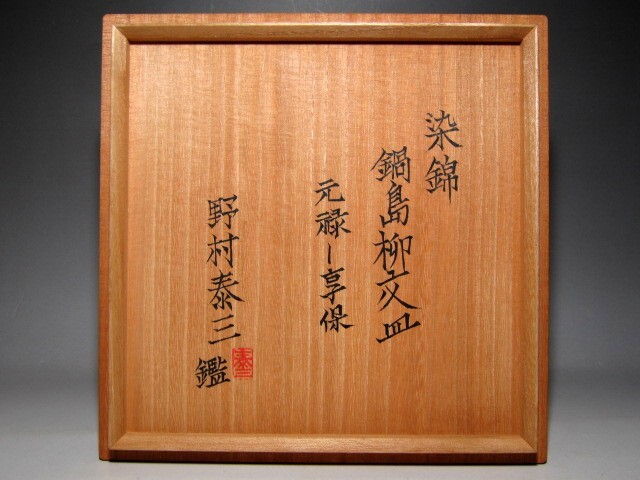 染錦
鍋島柳文皿
元禄ー享保
野村泰三鑑